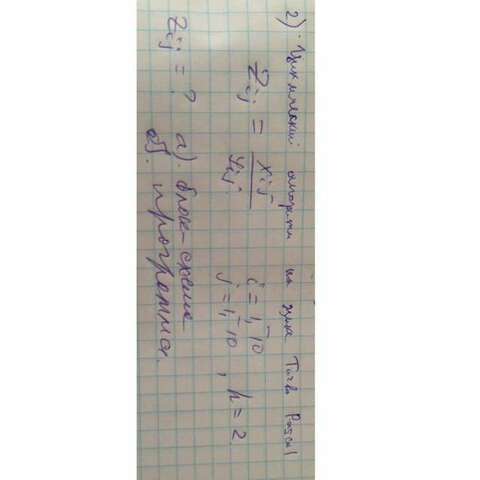 2). Циклический алгоритм на языке Turbo Pascal
Zij = xij / yij i = 1,10
j = 1,10 , h = 2
Zij = ? а). блок-схема
б). программа.